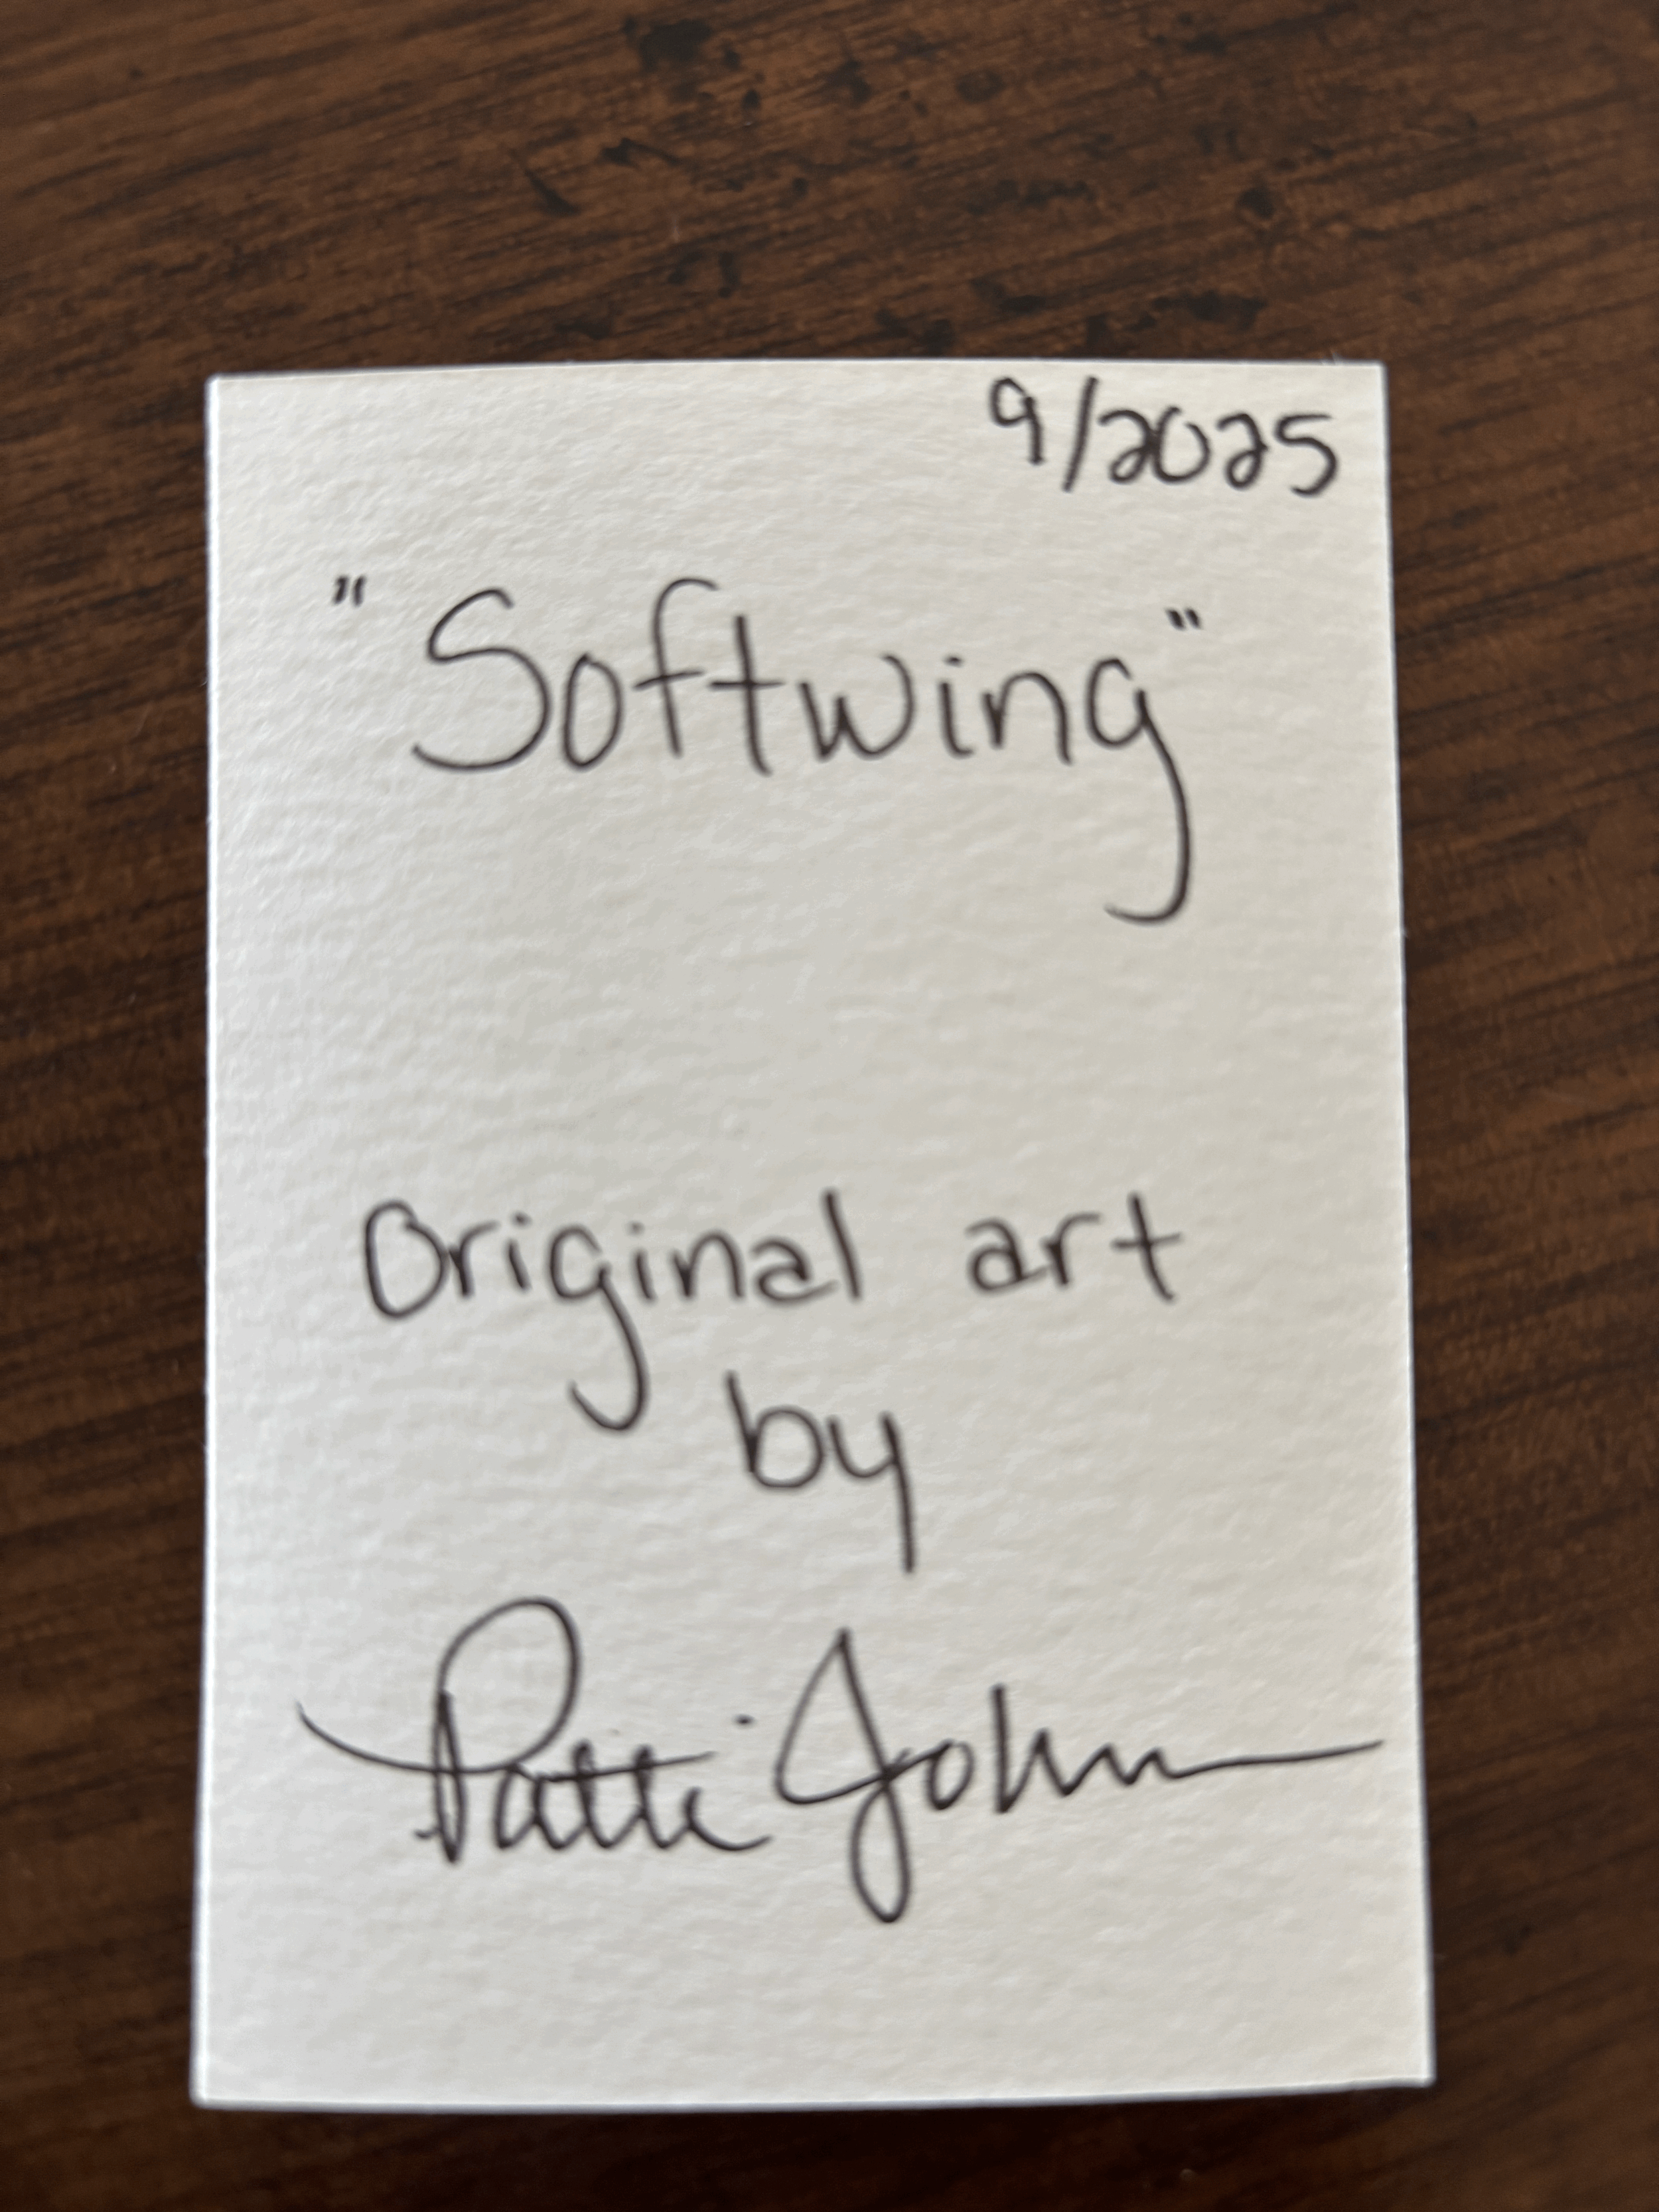 9/2025
"Softwing"
Original art
by
Patti John